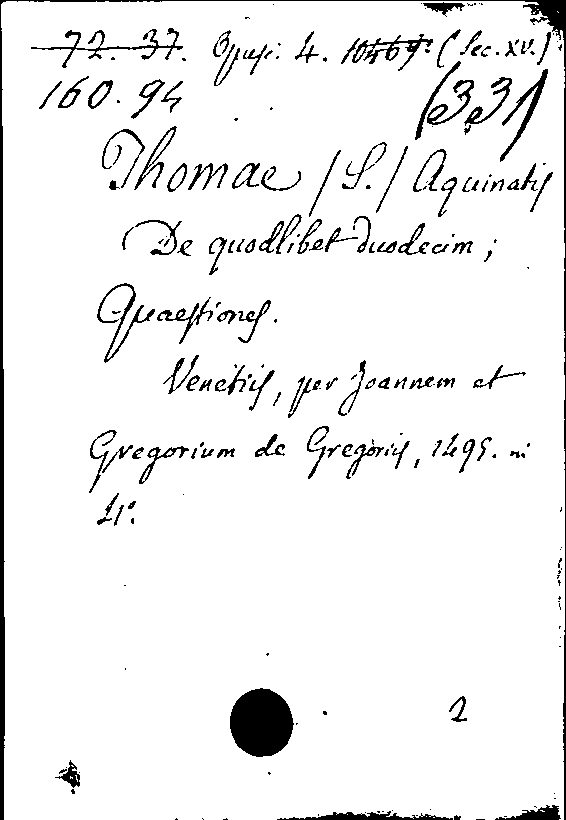 72. 37. Opusc. 4. 10469. (Sec. XV.)
160.94
(33)
Thomae (S.) Aquinatis
De quodlibet duodecim;
Quaestiones.
Venetiis, per Joannem et
Gregorium de Gregoriis, 1495. in
4°.
2